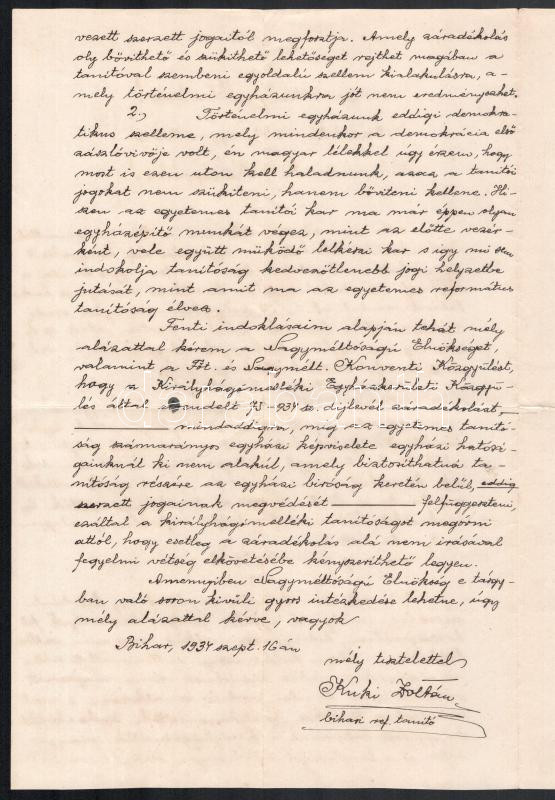 vezett szerzett jogaitól megfosztja. Amely záradékolás
oly bővithető és szükithető lehetőséget rejthet magában a
tanítóval szembeni egyoldalú szellem kialakulásra, a-
mely történelmi egyházunkra jót nem eredményezhet.
2.) Történelmi egyházunk eddigi demokra-
tikus szelleme, mely mindenkor a demokrácia első
zászlóvivője volt, én magyar lélekkel úgy érzem, hogy
most is ezen uton kell haladnunk, azaz a tanítói
jogokat nem szükiteni, hanem bőviteni kellene. Hi-
szen az egyetemes tanítói kar ma már éppen olyan
egyházépitő munkát végez, mint az előtte vezér-
ként, vele együtt müködő lelkészi kar s igy mi sem
indokolja tanítóság kedvezőtlenebb jogi helyzetbe
jutását, mint amit ma az egyetemes református
tanítóság élvez.
Fenti indoklásaim alapján tehát mély
alázattal kérem a Nagyméltóságú Elnökséget,
valamint a Főt. és Nagymélt. Konventi Közgyülést,
hogy a Királyhágómelléki Egyházkerületi Közgyü-
lés által elrendelt 1934 sz. díjlevél záradékolást,
mindaddigra, mig az egyetemes tanító-
ság számarányos egyházi képviselete egyházi hatósá-
gainknál ki nem alakul, amely biztosithatná ta-
nítóság részére az egyházi biróság keretén belül, eddig
szerzett jogainak megvédését felfüggeszteni,
ezáltal a királyhágómelléki tanítóságot megóvni
attól, hogy esetleg a záradékolás alá nem irásával
fegyelmi vétség elkövetésébe kényszerithető legyen.
Amennyiben Nagyméltóságú Elnökség e tárgy-
ban való soron kivüli gyors intézkedése lehetne, úgy
mély alázattal kérve, vagyok
Bihar, 1934 szept. 16án
mély tisztelettel
Kuki Zoltán
bihari ref. tanító